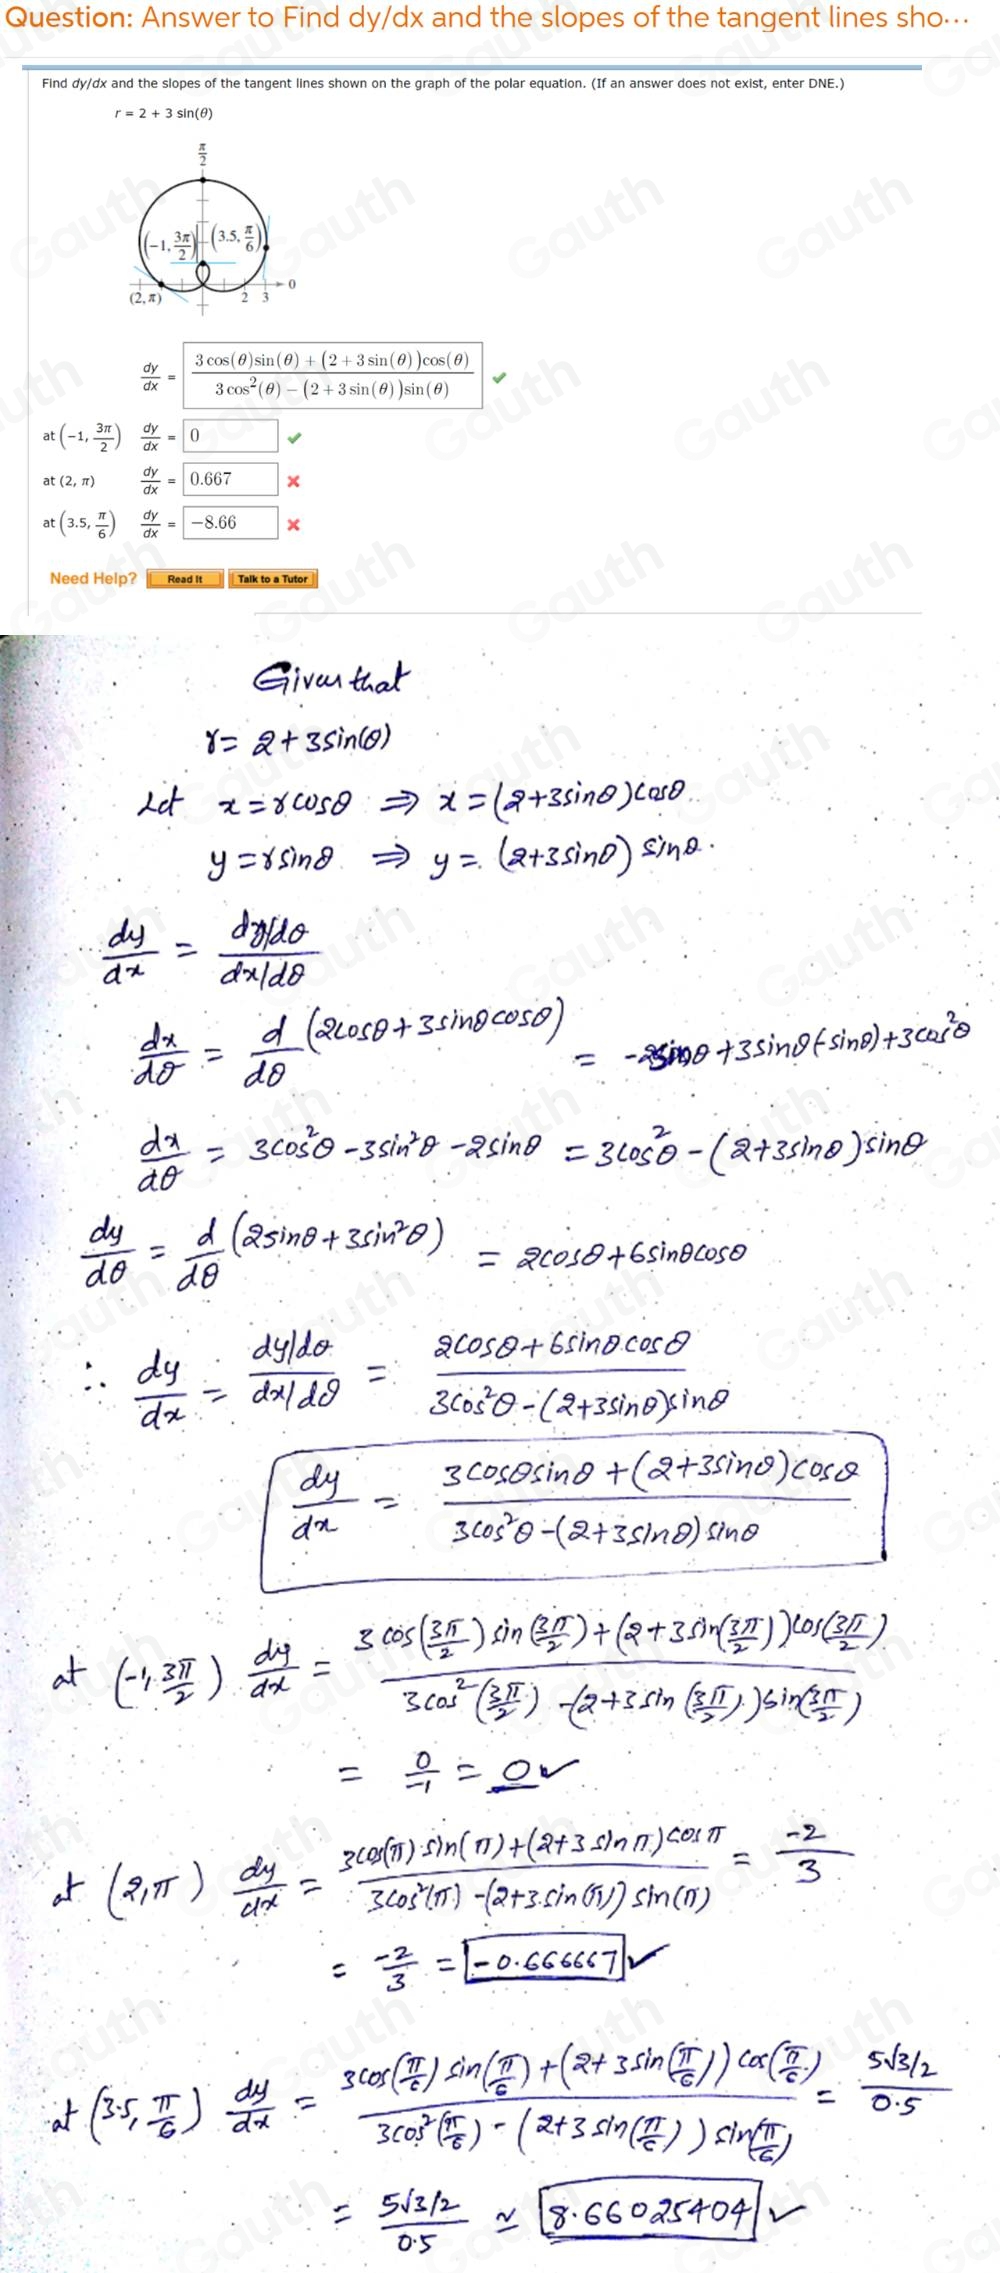 Question: Answer to Find dy/dx and the slopes of the tangent lines sho...
Find dy/dx and the slopes of the tangent lines shown on the graph of the polar equation. (If an answer does not exist, enter DNE.)
r = 2 + 3 sin(θ)
π/2
(-1, 3π/2) (3.5, π/6)
0
(2, π) 2 3
dy/dx = (3 cos(θ)sin(θ) + (2 + 3 sin(θ))cos(θ))/(3 cos²(θ) − (2 + 3 sin(θ))sin(θ)) ✔
at (−1, 3π/2) dy/dx = 0 ✔
at (2, π) dy/dx = 0.667 ✖
at (3.5, π/6) dy/dx = −8.66 ✖
Need Help? Read It Talk to a Tutor
Given that
r = 2+3sin(θ)
Let x = rcosθ ⇒ x = (2+3sinθ)cosθ
y = rsinθ ⇒ y = (2+3sinθ) sinθ.
dy/dx = (dy/dθ)/(dx/dθ)
dx/dθ = d/dθ (2cosθ+3sinθcosθ) = -2sinθ+3sinθ(-sinθ)+3cos²θ
dx/dθ = 3cos²θ-3sin²θ-2sinθ = 3cos²θ-(2+3sinθ)sinθ
dy/dθ = d/dθ (2sinθ+3sin²θ) = 2cosθ+6sinθcosθ
∴ dy/dx = (dy/dθ)/(dx/dθ) = (2cosθ+6sinθ.cosθ)/(3cos²θ-(2+3sinθ)sinθ)
dy/dx = (3cosθsinθ+(2+3sinθ)cosθ)/(3cos²θ-(2+3sinθ)sinθ)
at (-1, 3π/2) dy/dx = (3cos(3π/2)sin(3π/2)+(2+3sin(3π/2))cos(3π/2))/(3cos²(3π/2)-(2+3sin(3π/2))sin(3π/2))
= 0/-1 = 0 ✓
at (2,π) dy/dx = (3cos(π).sin(π)+(2+3sinπ)cosπ)/(3cos²(π)-(2+3.sin(π))sin(π)) = -2/3
= -2/3 = -0.666667 ✓
at (3.5, π/6) dy/dx = (3cos(π/6)sin(π/6)+(2+3sin(π/6))cos(π/6))/(3cos²(π/6)-(2+3sin(π/6))sin(π/6)) = (5√3/2)/0.5
= (5√3/2)/0.5 ≃ 8.66025404 ✓